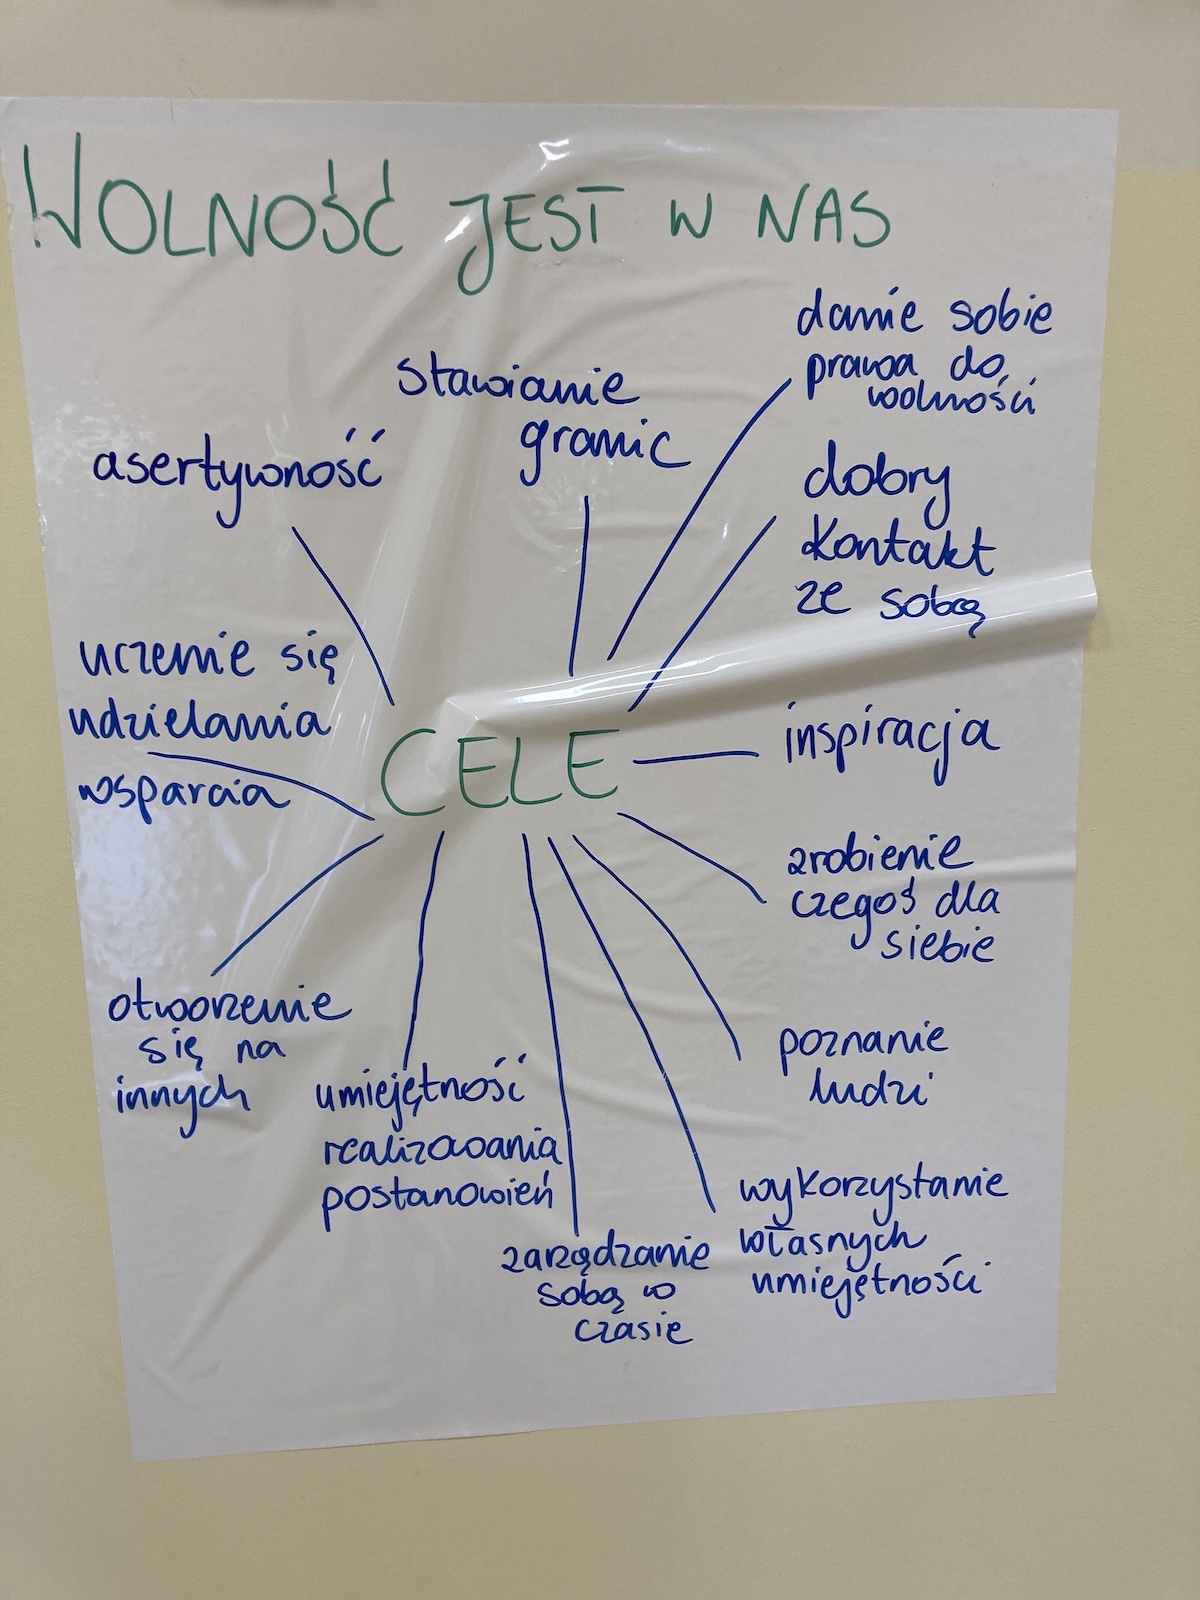 WOLNOŚĆ JEST W NAS
danie sobie
prawa do
wolności
stawianie
granic
asertywność
dobry
kontakt
ze sobą
uczenie się
udzielania
wsparcia
CELE
inspiracja
zrobienie
czegoś dla
siebie
otworzenie
się na
innych
umiejętność
realizowania
postanowień
poznanie
ludzi
wykorzystanie
własnych
umiejętności
zarządzanie
sobą w
czasie